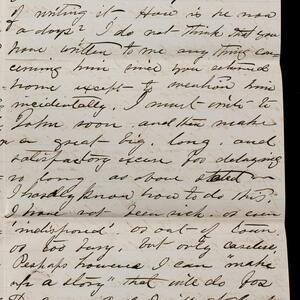 of writing it How is he now
a days? I do not think that you
have written to me any thing con
cerning him since you returned
home except to mention him
incidentally. I must write to
John soon and then make
a great big, long, and
satisfactory excuse for delaying
so long as above stated
I hardly know how to do this.
I have not been sick, or even
"indisposed", or out of town
or too busy, but only careless
Perhaps however I can "make
up a story" that will do for